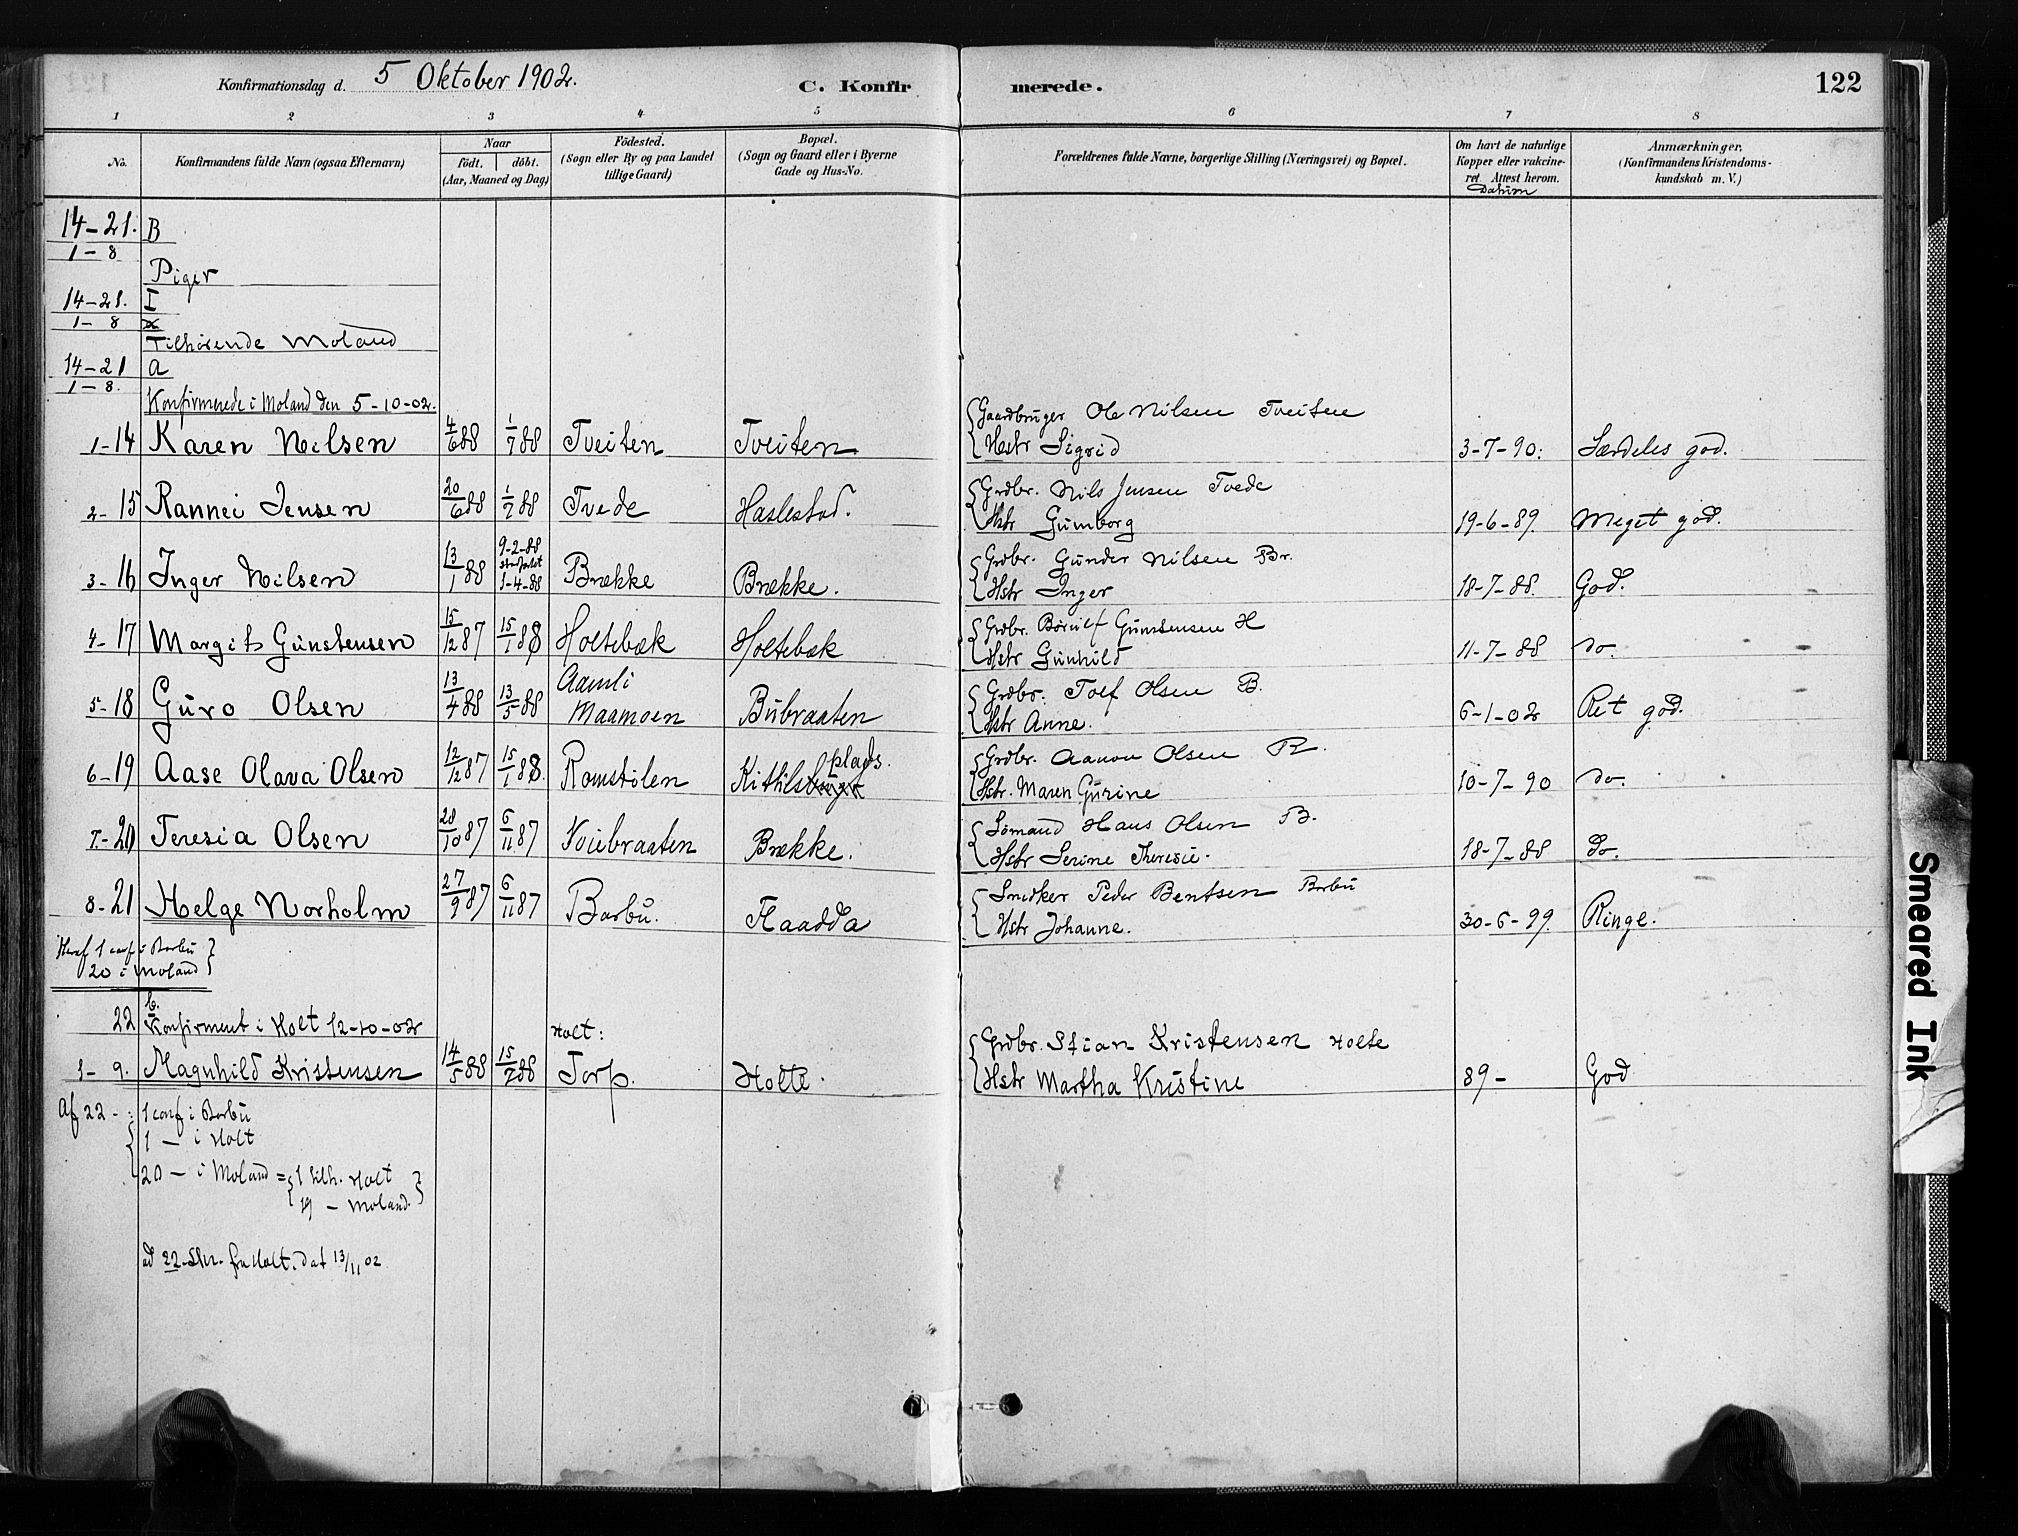 Konfirmationsdag d. 5 Oktober 1902.
C. Konfirmerede.
122
1 2 3 4 5 6 7 8
No.
Konfirmandens fulde Navn (ogsaa Efternavn)
Naar
födt. döbt.
(Aar, Maaned og Dag)
Födested.
(Sogn eller By og paa Landet
tillige Gaard)
Bopæl.
(Sogn og Gaard eller i Byerne
Gade og Hus-No.
Forældrenes fulde Navne, borgerlige Stilling (Næringsvei) og Bopæl.
Om havt de naturlige
Kopper eller vakcine-
ret. Attest herom.
Datum
Anmærkninger.
(Konfirmandens Kristendoms-
kundskab m. V.)
14-21. B
1-8
Piger
14-21. I
1-8
Tilhørende Moland
14-21 a
1-8.
Konfirmerede i Moland den 5-10-02.
Gaardbruger Ole Nilsen Tveiten
1-14 Karen Nilsen 4/6 88 1/7 88 Tveiten Tveiten Hstr Sigrid 3-7-90. Særdeles god.
Grdbr. Nils Jensen Tvede
2-15 Rannei Jensen 20/6 88 1/7 88 Tvede Haslestad. Hstr Gunborg 19-6-89. Meget god.
9-2-88
Grdbr. Gunder Nilsen Br.
3-16 Inger Nilsen 13/1 88 1-4-88 Brække Brække. Hstr Inger 18-7-88. God.
Grdbr. Børulf Gunstensen H
4-17 Margit Gunstensen 15/12 87 15/1 88 Holtebæk Holtebæk Hstr Gunhild 11-7-88 do.
Aamli
Grdbr. Tolf Olsen B.
5-18 Guro Olsen 13/4 88 13/5 88 Maamoen Bubraaten Hstr Anne. 6-1-02 Ret god.
plads.
Grdbr. Aanon Olsen R.
6-19 Aase Olava Olsen 12/12 87 15/1 88. Romstølen Kittils Hstr. Maren Gurine 10-7-90 do.
Sømand Hans Olsen B.
7-20 Teresia Olsen 28/10 87 6/11 87 Voiebraaten Brække. Hstr Serine Theresie. 18-7-88 do.
Snedker Peder Bentsen Barbu
8-21 Helge Norholm 27/9 87 6/11 87 Barbu. Flaadda Hstr Johanne. 30-6-99. Ringe.
Heraf 1 conf i Barbu
20 i Moland
b.
22 Konfirmeret i Holt 12-10-02
Holt:
Grdbr. Stian Kristensen Holte
1-9. Magnhild Kristensen 14/5 88 15/7 88 Torp. Holte. Hstr Martha Kristine 89- God
Af 22-: 1 conf i Barbu
1 - i Holt
20 - i Moland = 1 tilh. Holt
19 - Moland.
ad 22. Skr. fra Holt. dat 13/11 02
Smeared Ink